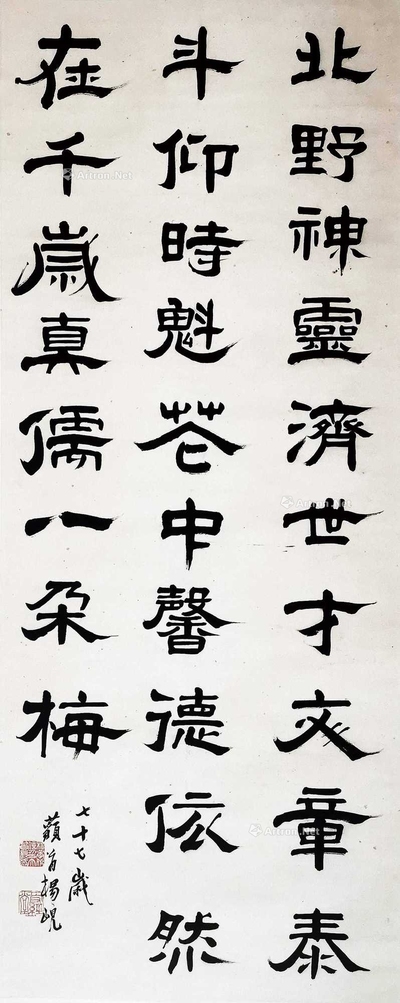 北野神靈濟世才文章泰
斗仰時魁花中馨德依然
在千歲真儒一朵梅
七十七歲
藐翁楊峴
Artron.Net
Artron.Net
Artron.Net